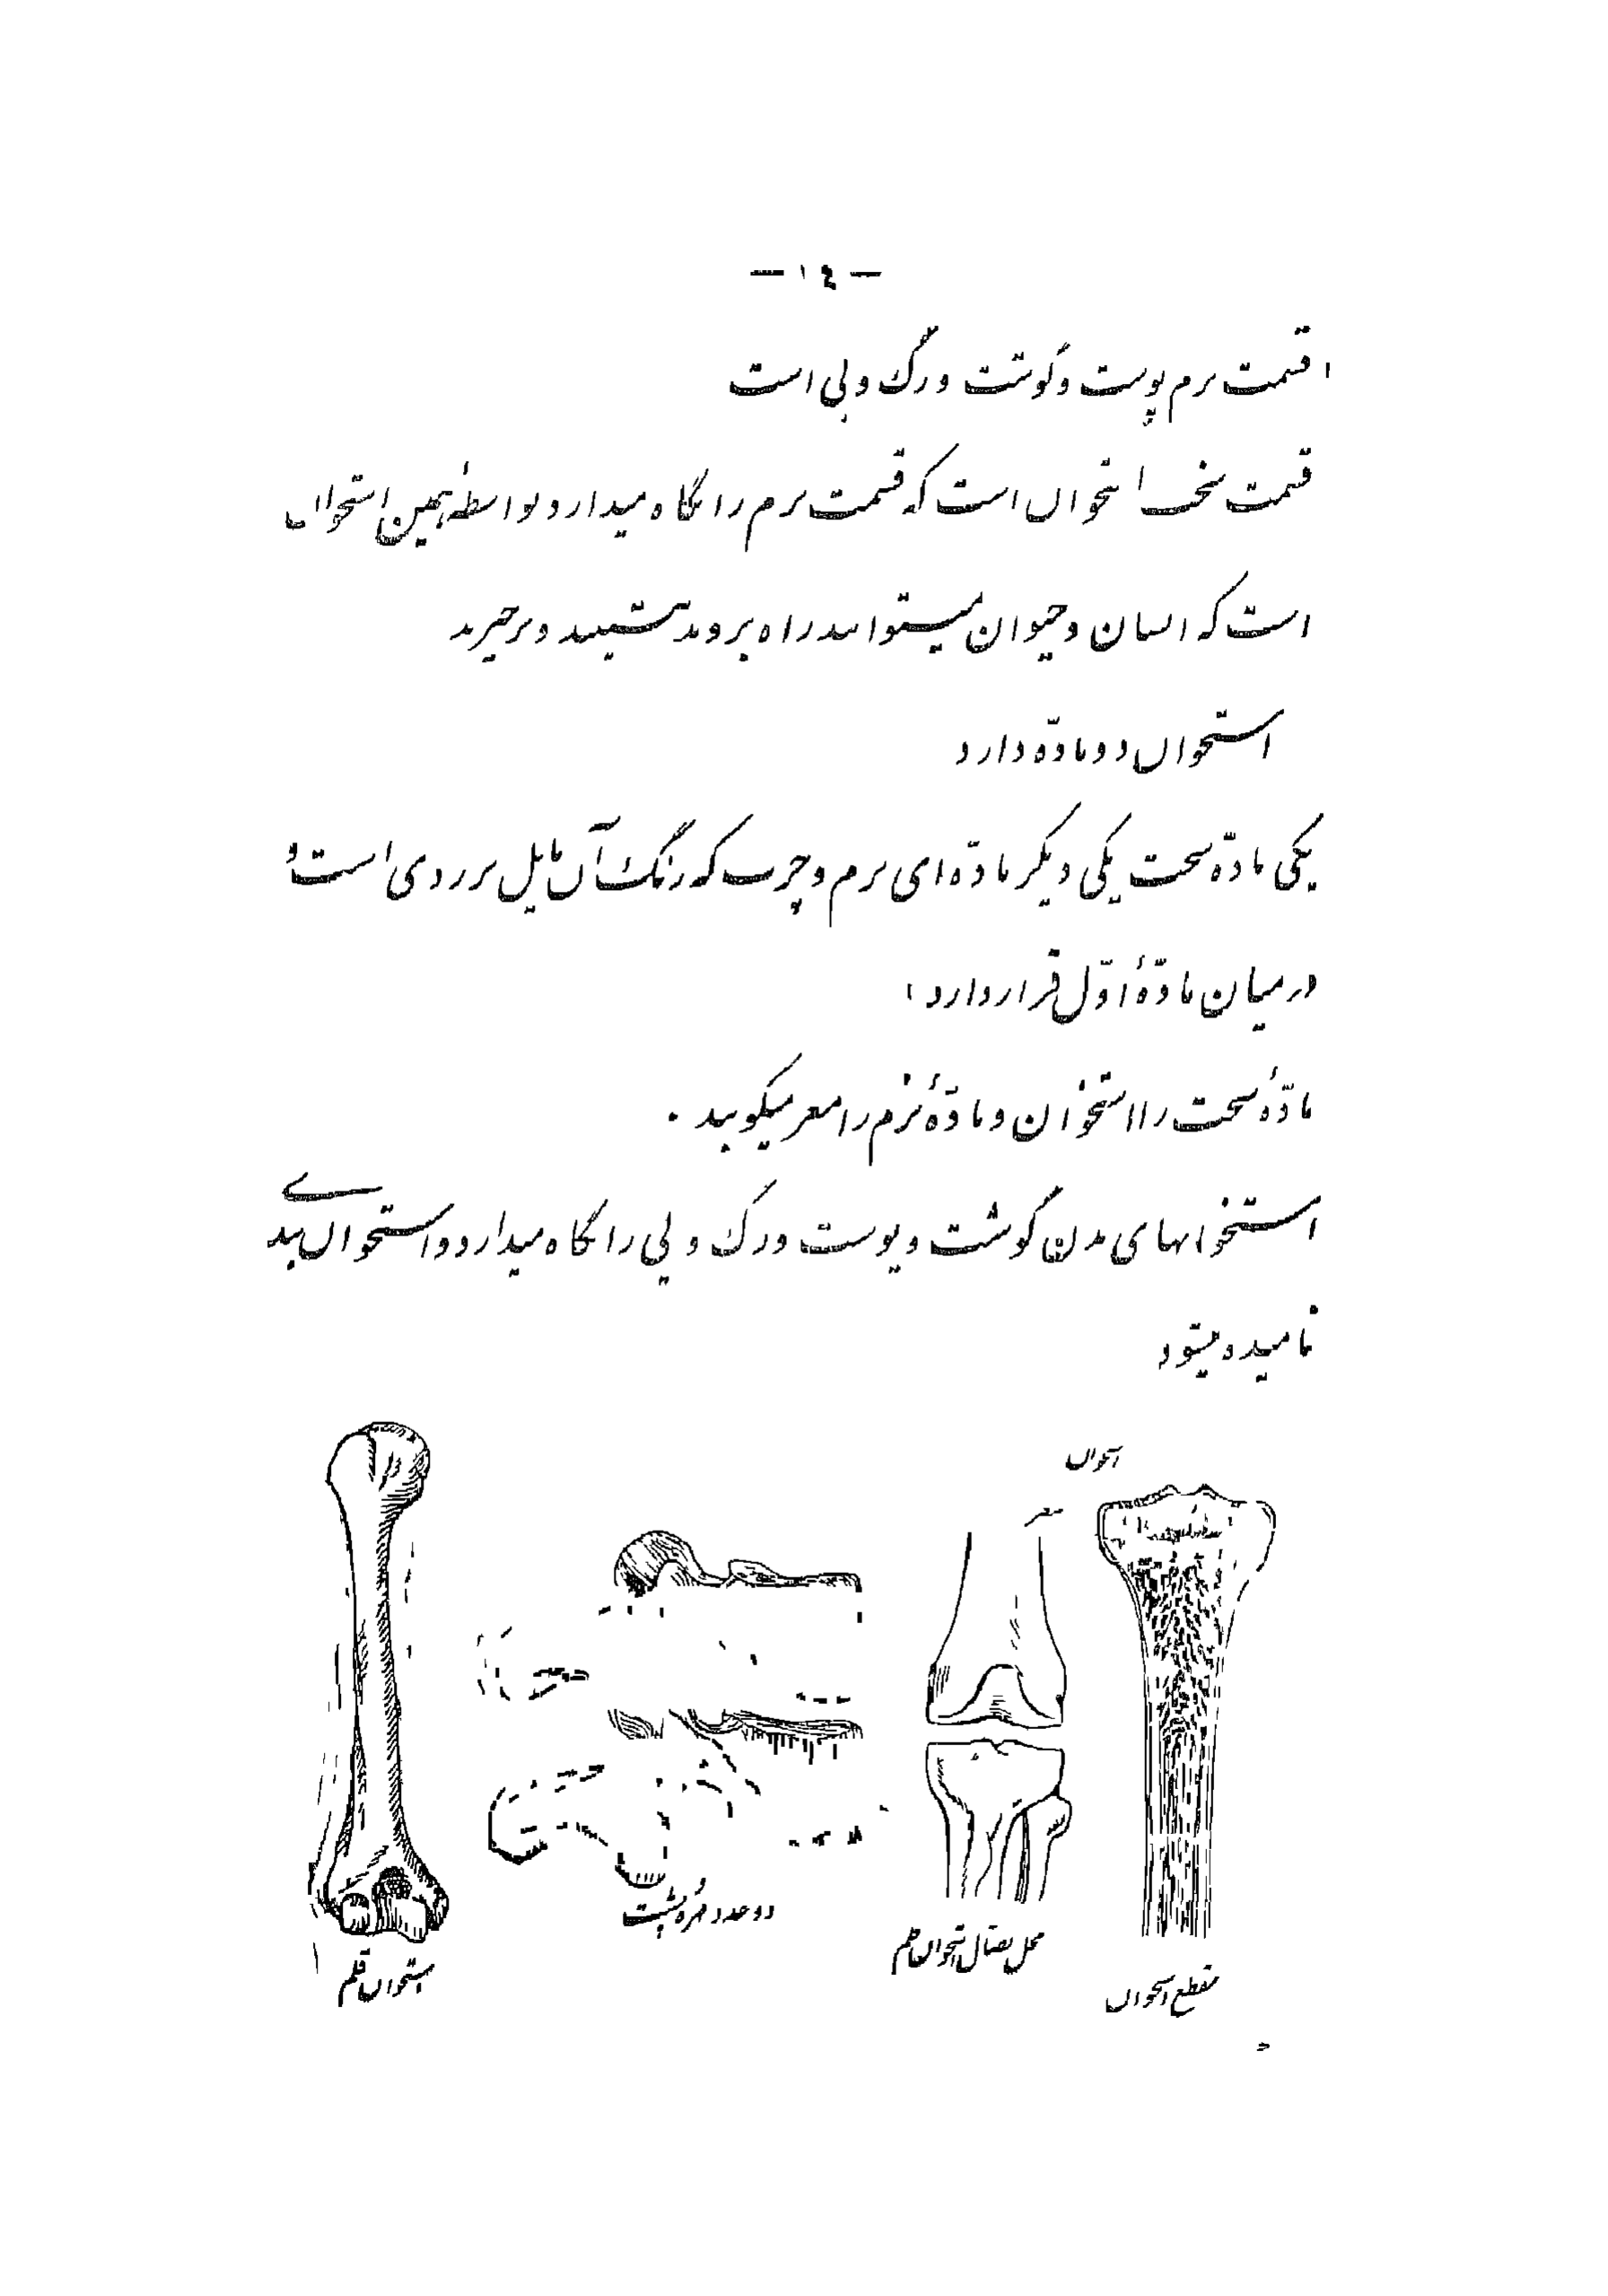 — ١٤ —
قسمت نرم پوست و گوشت و رگ و پی است
قسمت سخت استخوان است که قسمت نرم را نگاه میدارد بواسطهٔ همین استخوان
است که انسان و حیوان میتوانند راه بروند بنشینند و برخیزند
استخوان دو مادّه دارد
یکی مادّه سخت یکی دیگر مادّه‌ای نرم و چرب که رنگ آن مایل بزردی است و
در میان مادّهٔ اوّل قرار دارد
مادّهٔ سخت را استخوان و مادّهٔ نرم را مغز میگویند .
استخوانهای بدن گوشت و پوست و رگ و پی را نگاه میدارد و استخوان بندی
نامیده میشود
استخوان
دو عدد مهرهٔ پشت
محل اتصال استخوان قلم
استخوان قلم
مقطع استخوان